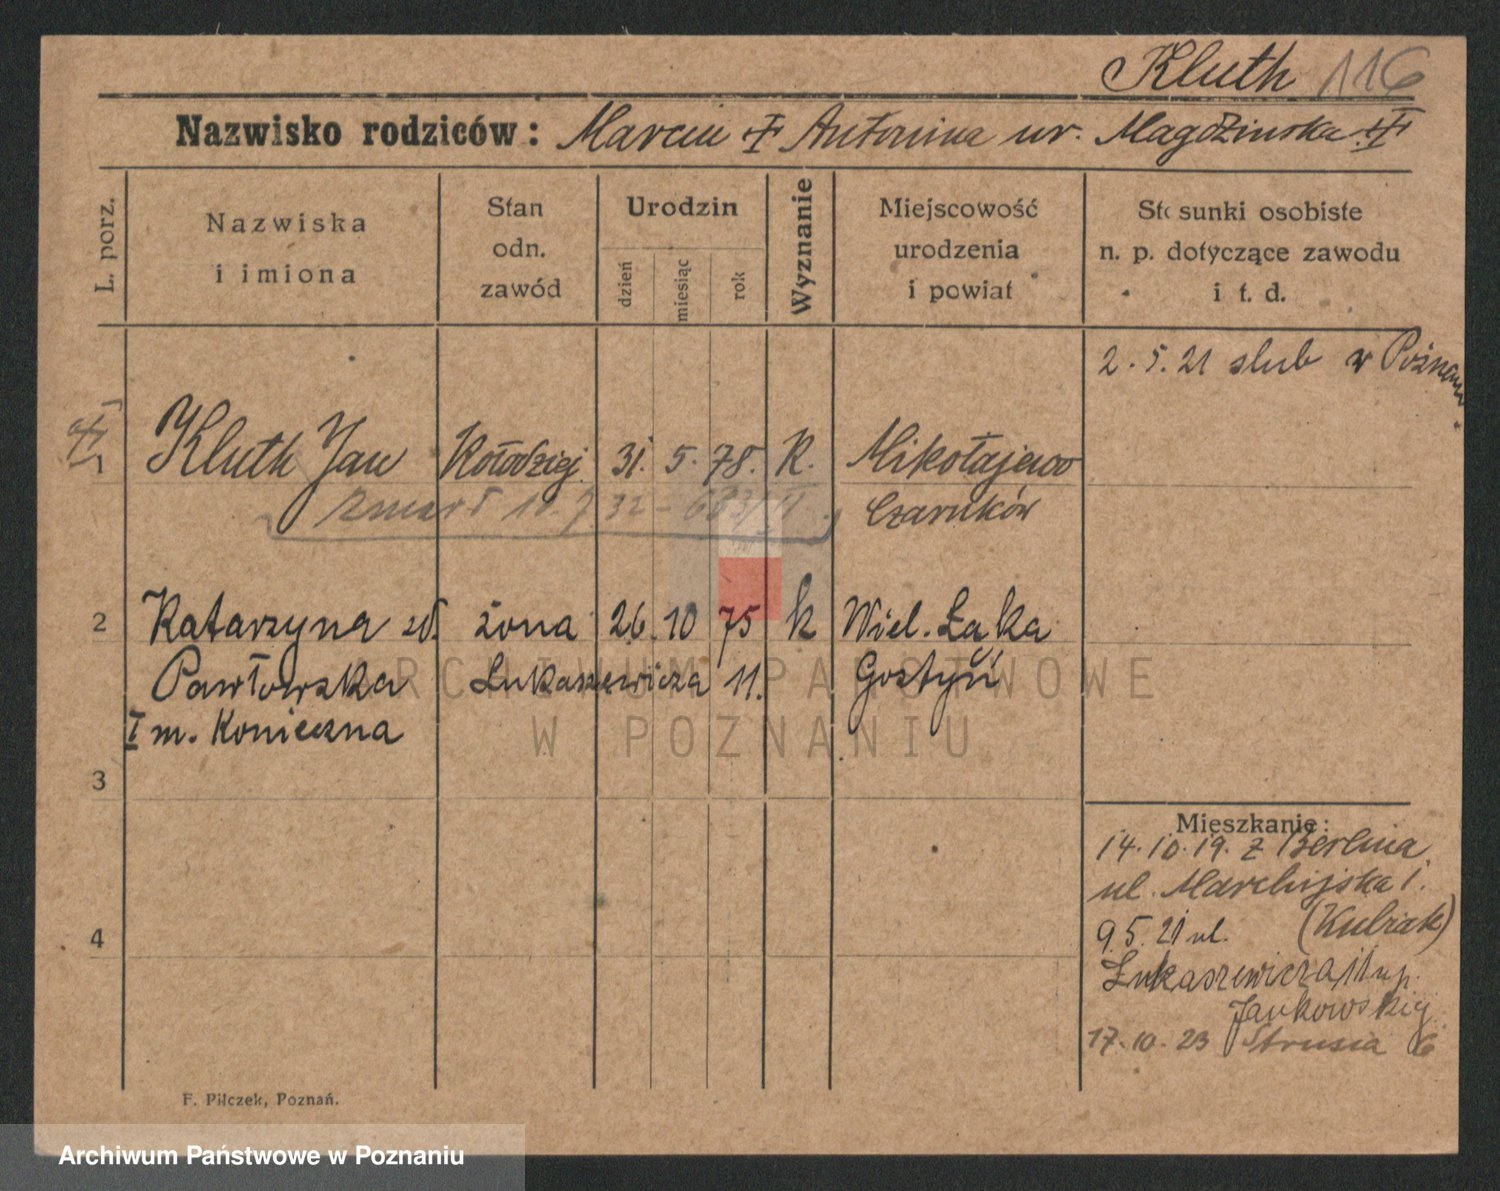 Kluth 116
Nazwisko rodziców: Marcin Antonina ur. Magdzinska
L. porz.
Nazwiska
i imiona
Stan
odn.
zawód
Urodzin
dzień
miesiąc
rok
Wyznanie
Miejscowość
urodzenia
i powiat
Stosunki osobiste
n. p. dotyczące zawodu
i t. d.
2. 5. 21 slub w Poznaniu
1 Kluth Jan Kołodziej 31. 5. 78. K. Mikołajewo
zmarł 10.7 32 - 683/II Czarnków
2 Katarzyna zd. żona 26. 10 75 k Wiel. Łąka
Pawłowska Łukaszewicza 11. Gostyń
I m. Konieczna
3
4
Mieszkanie:
14. 10. 19. z Berlina
ul. Marchijska 1.
(Kubiak)
9. 5. 21 ul.
Łukaszewicza 11 u p.
Jankowskiej
17. 10. 23 Strusia 6
F. Pilczek, Poznań.
ARCHIWUM PAŃSTWOWE
W POZNANIU
Archiwum Państwowe w Poznaniu